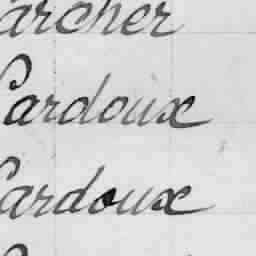 archer
Cardoux
Cardoux